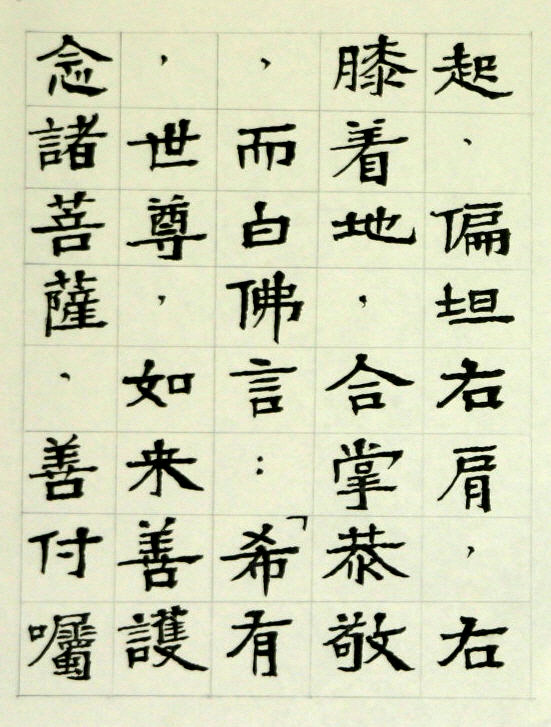 起,偏坦右肩,右
膝着地,合掌恭敬
,而白佛言:「希有
,世尊,如来善護
念諸菩薩,善付囑